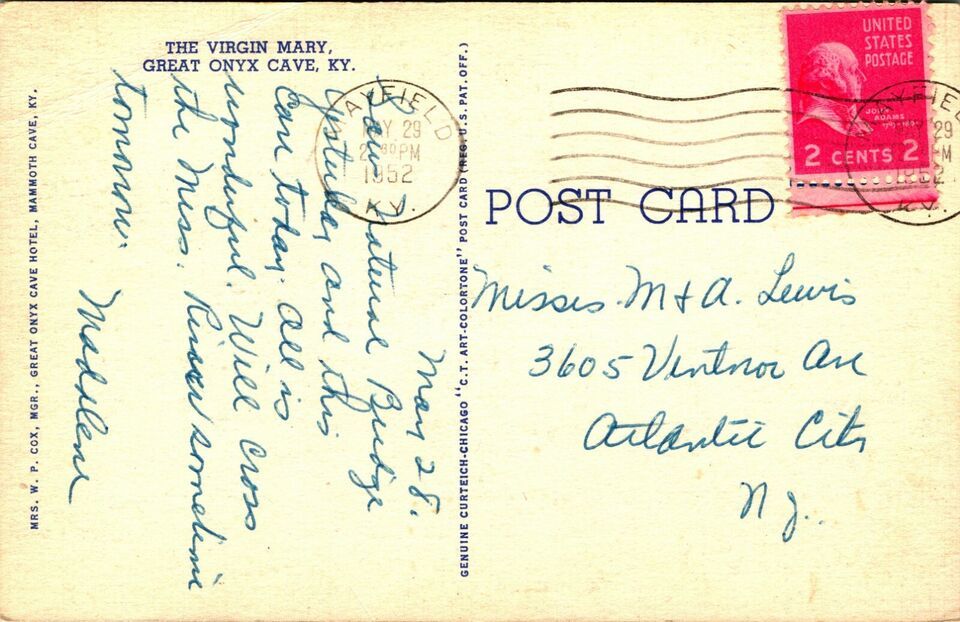 THE VIRGIN MARY,
GREAT ONYX CAVE, KY.
MRS. W. P. COX, MGR., GREAT ONYX CAVE HOTEL, MAMMOTH CAVE, KY.
May 28.
Saw Natural Bridge
yesterday and this
Cave today. All is
wonderful. Will cross
the Miss. River sometime
tomorrow.
Madelene
GENUINE CURTEICH-CHICAGO "C.T. ART-COLORTONE" POST CARD (REG. U.S. PAT. OFF.)
MAYFIELD
MAY 29
2 30 PM
1952
KY.
UNITED
STATES
POSTAGE
JOHN
ADAMS
2 CENTS 2
MAYFIEL
29
M
1952
KY.
POST CARD
Misses M & A. Lewis
3605 Ventnor Ave
Atlantic City
N.J.